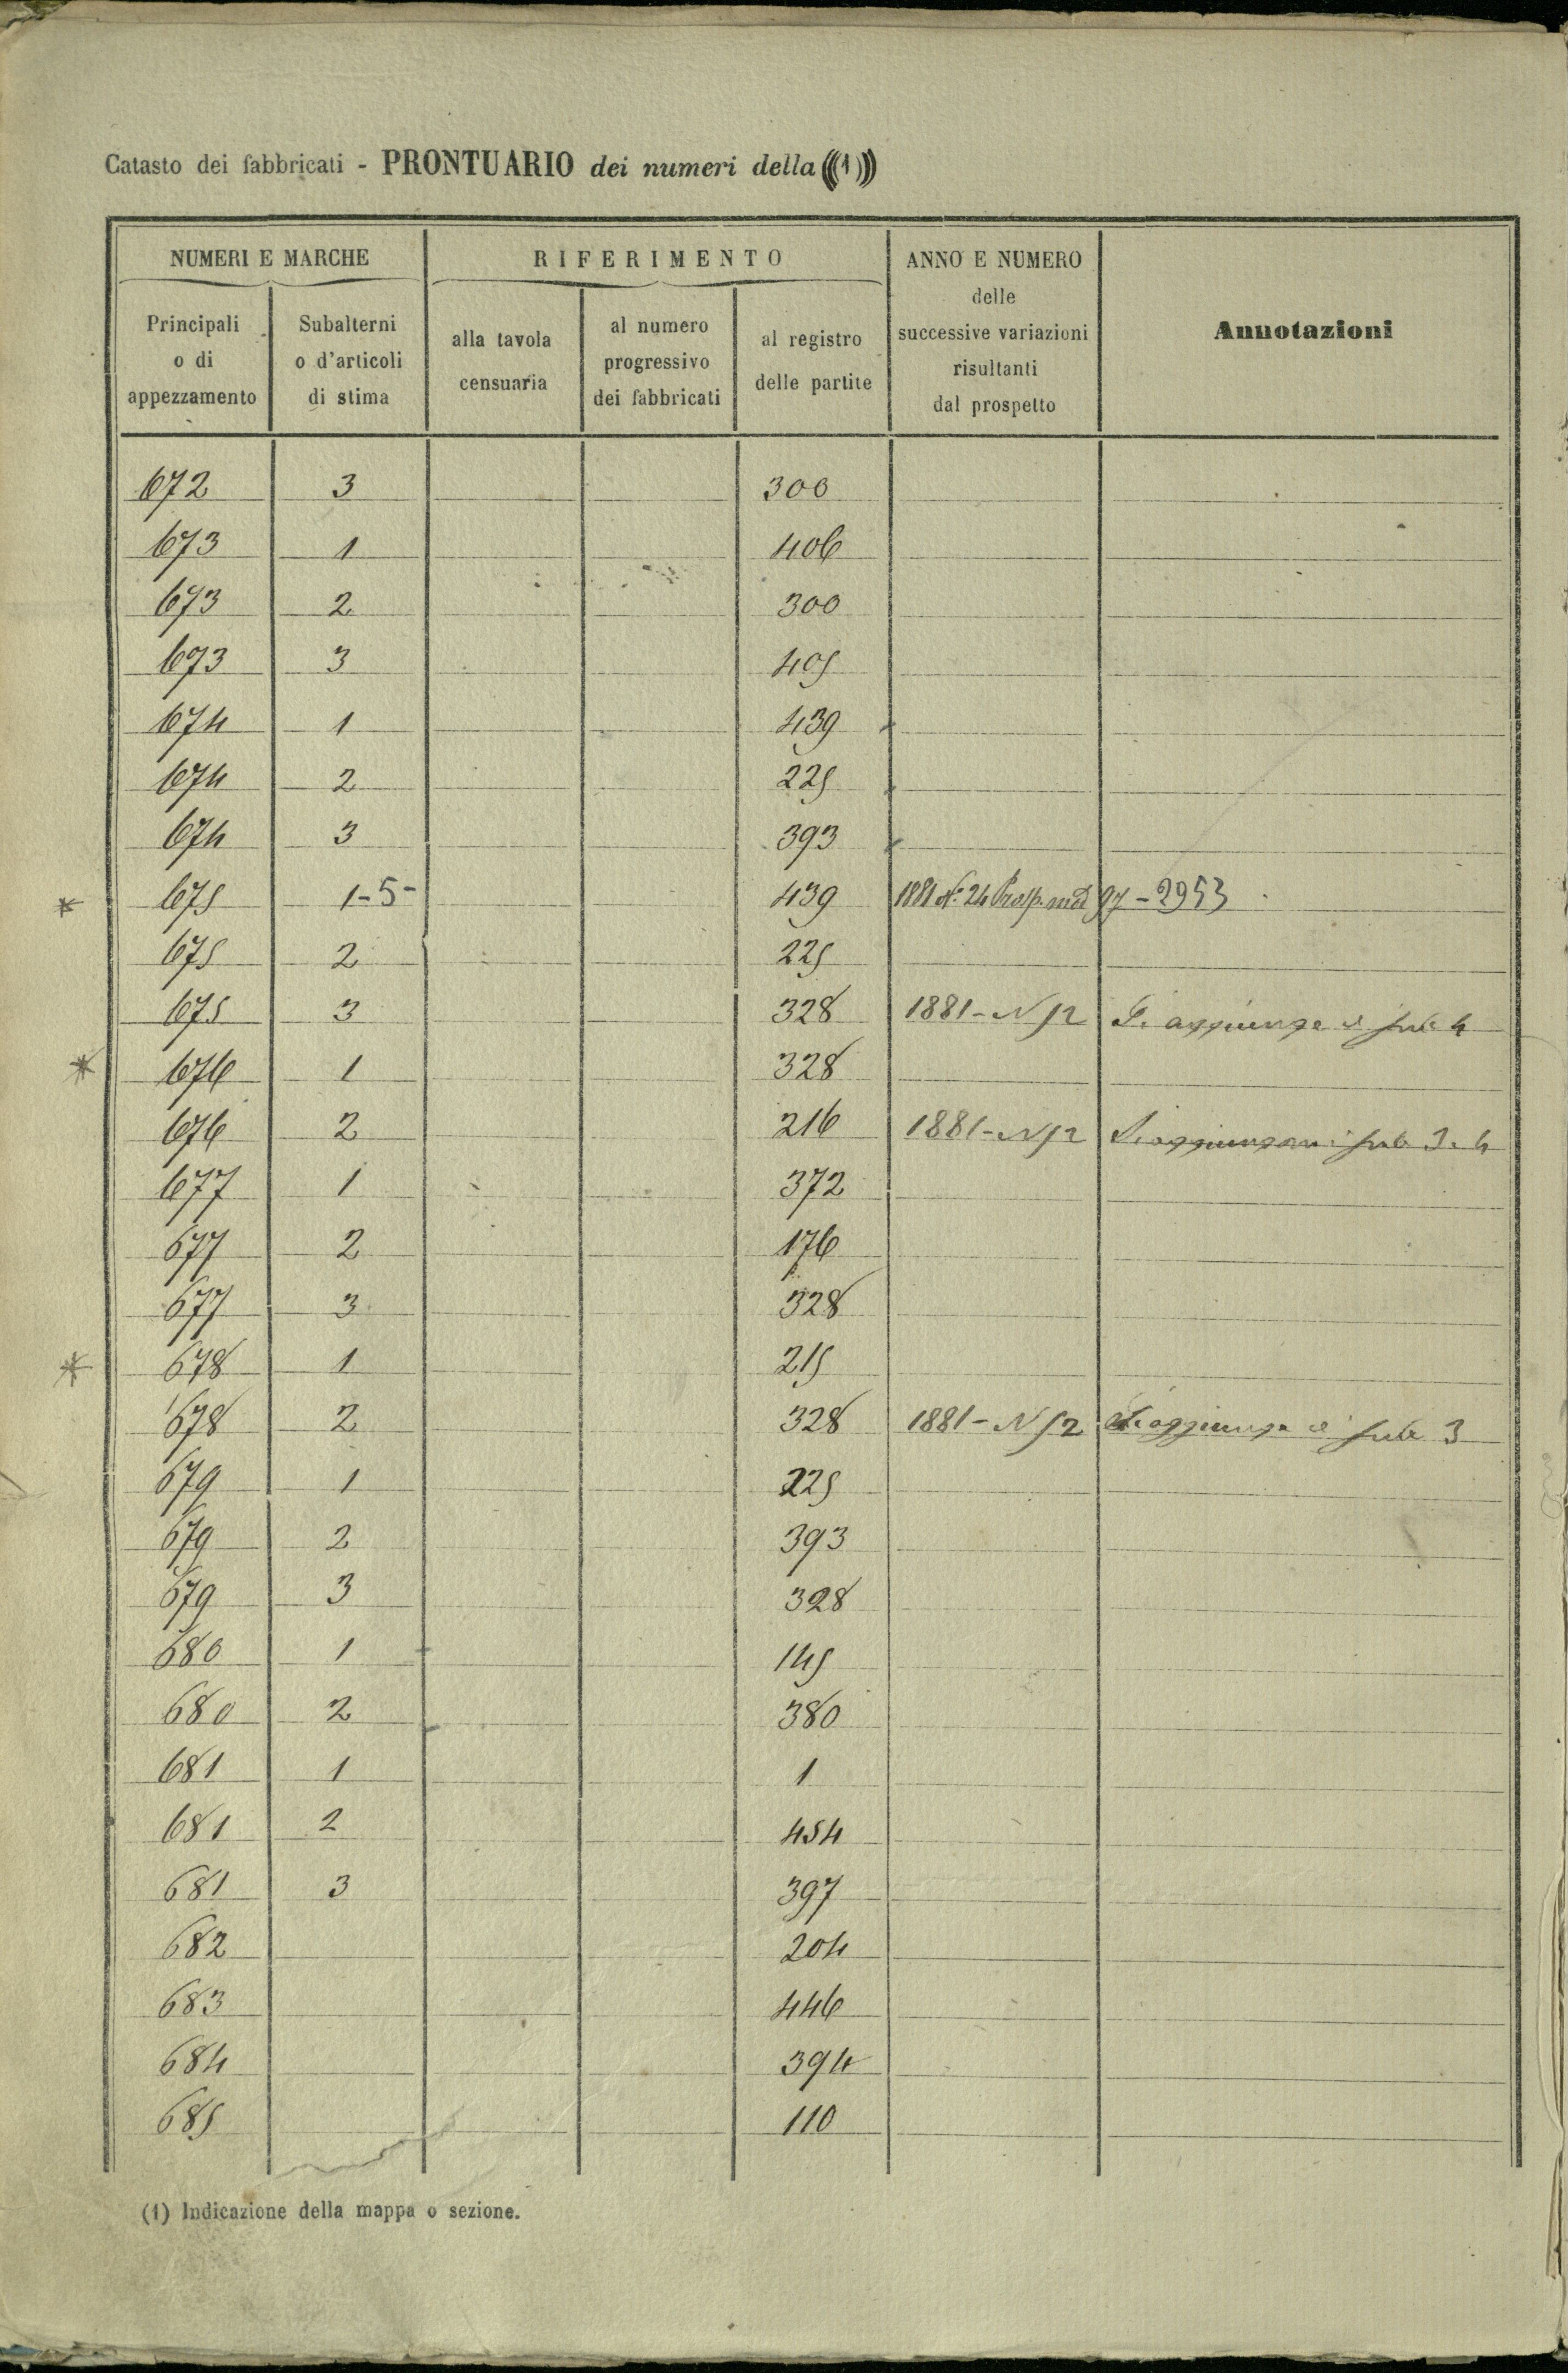 Catasto dei fabbricati - PRONTUARIO dei numeri della (((1)))
NUMERI E MARCHE
RIFERIMENTO
ANNO E NUMERO
delle
successive variazioni
risultanti
dal prospetto
Annotazioni
Principali
o di
appezzamento
Subalterni
o d'articoli
di stima
alla tavola
censuaria
al numero
progressivo
dei fabbricati
al registro
delle partite
672 3 300
673 1 406
673 2 300
673 3 405
674 1 439
674 2 225
674 3 393
* 675 1-5- 439 1881 N.° 24 Prosp. mod 97 - 2953
675 2 225
675 3 328 1881 - N 52 Si aggiunge il sub 4
* 676 1 328
676 2 216 1881 - N 52 Si aggiungono i sub 3. 4
677 1 372
677 2 176
677 3 328
* 678 1 215
678 2 328 1881 - N 52 Si aggiunge il sub 3
679 1 225
679 2 393
679 3 328
680 1 145
680 2 380
681 1 1
681 2 454
681 3 397
682 204
683 446
684 394
685 110
(1) Indicazione della mappa o sezione.